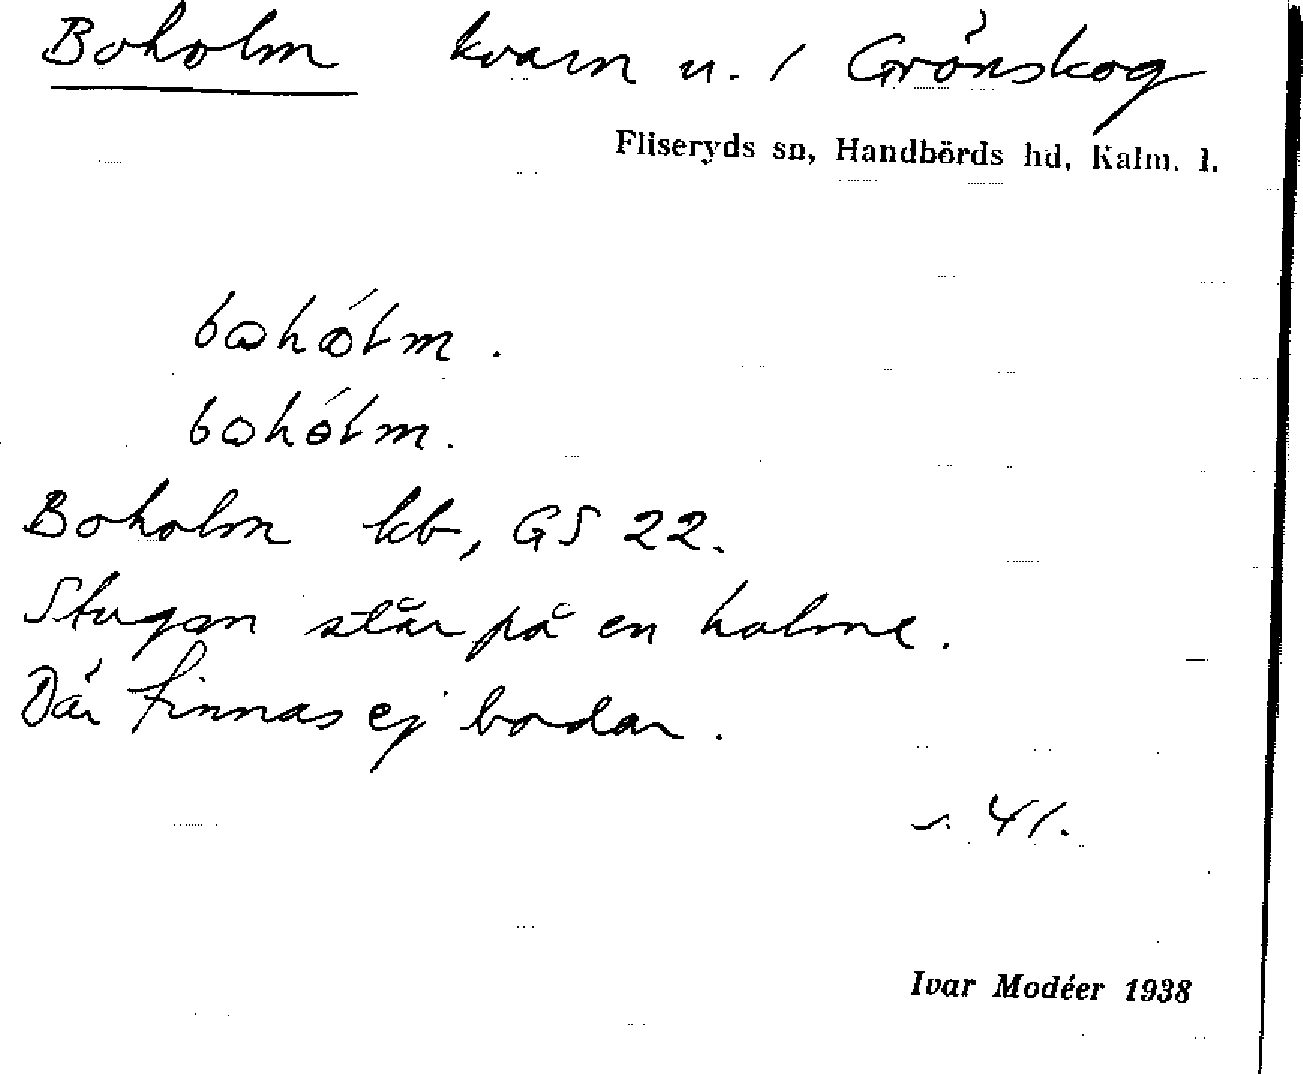 Boholm kvarn u. 1 Grönskog
Fliseryds sn, Handbörds hd, Kalm. l.
Boholm kb, GS 22.
Stugan står på en holme.
Där finnas ej bodar.
41.
Ivar Modéer 1938